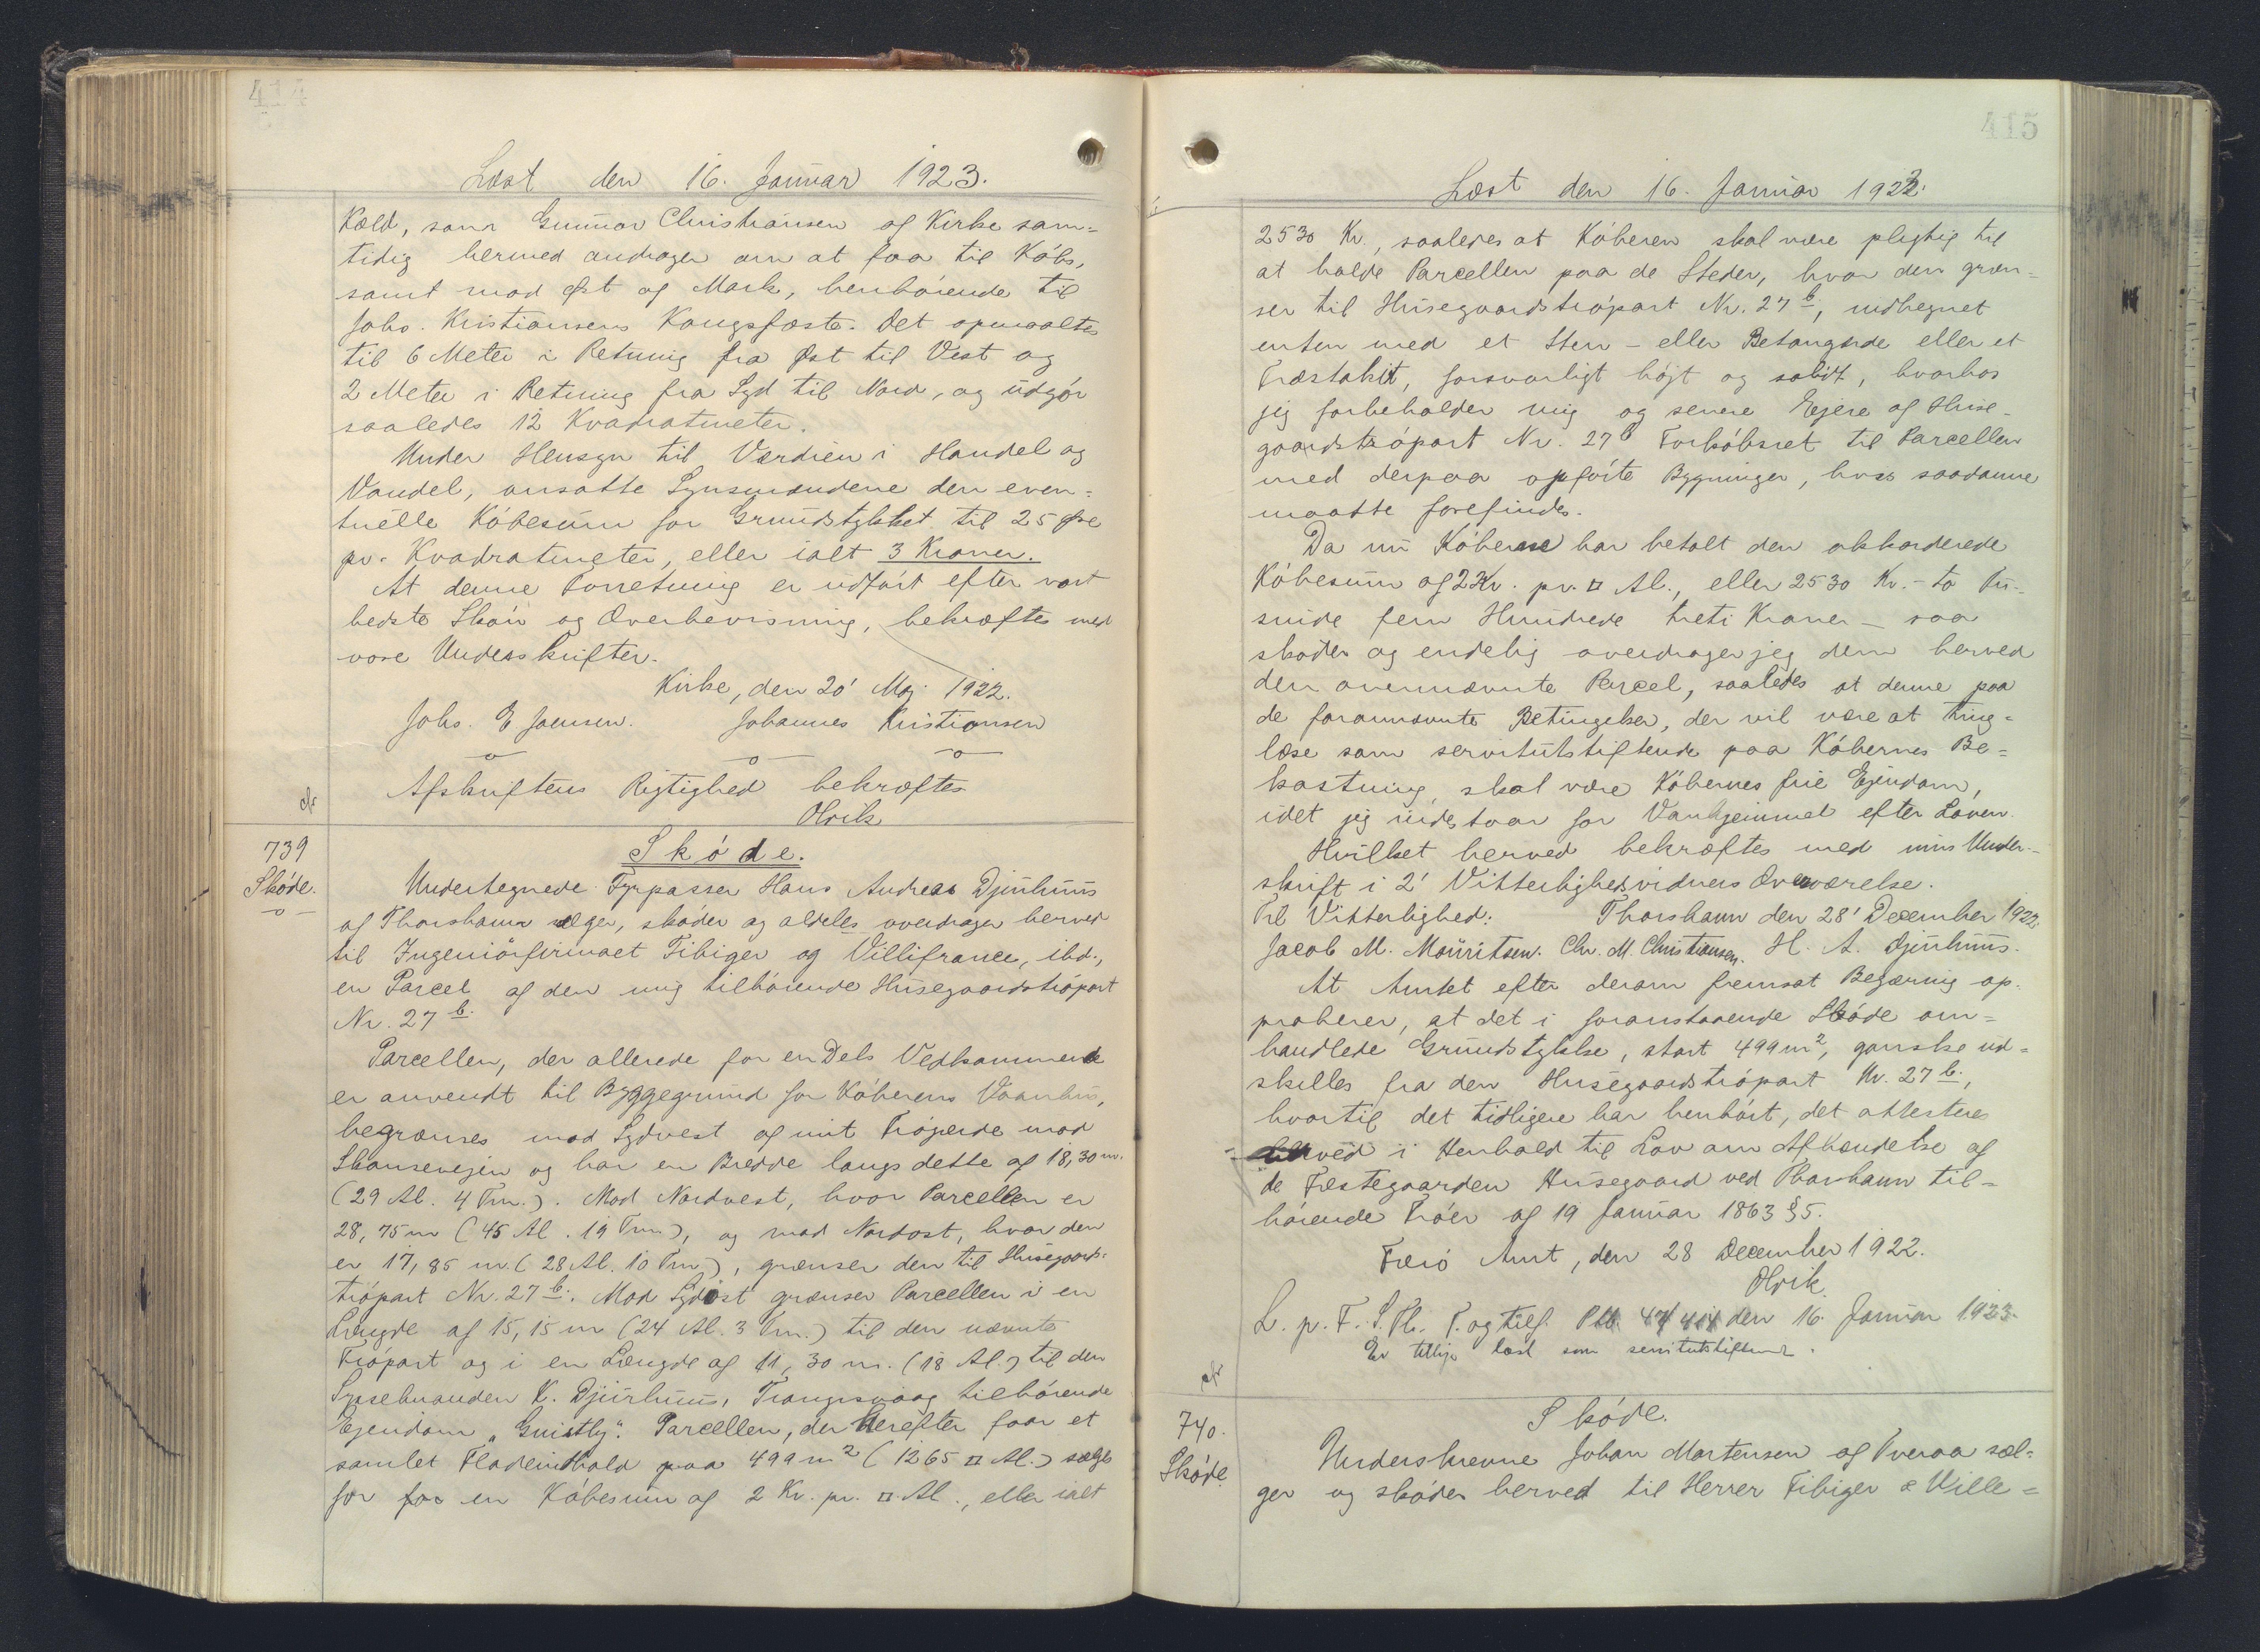 414
Læst den 16. Januar 1923.
Kæld, som Gunnar Christiansen af Kirke sam=
tidig hermed andrager om at faa til Købs,
samt mod Øst og Mark, henhørende til
Johs. Kristiansens Kongsfæste. Det opmaaltes
til 6 Meter i Retning fra Øst til Vest og
2 Meter i Retning fra Syd til Nord, og udgør
saaledes 12 Kvadratmeter.
Under Hensyn til Værdien i Handel og
Vandel, ansatte Synsmændene den even=
tuelle Købesum for Grundstykket til 25 Øre
pr. Kvadratmeter, eller ialt 3 Kroner.
At denne Forretning er udført efter vort
bedste Skøn og Overbevisning, bekræftes med
vore Underskrifter.
Kirke, den 20' Maj 1922.
Johs. E Joensen. Johannes Kristiansen
Afskriftens Rigtighed bekræftes
Olrik
739
Skøde.
Skøde.
Undertegnede Fyrpasser Hans Andreas Djurhuus
af Thorshavn sælger, skøder og aldeles overdrager herved
til Ingeniørfirmaet Fibiger og Villifrance, ibd.,
en Parcel af den mig tilhørende Husegaardstrøpart
Nr. 27 b.
Parcellen, der allerede for en Dels Vedkommende
er anvendt til Byggegrund for Køberens Vaanhus,
begrænses mod Sydvest af mit Trøgærde mod
Skansevejen og har en Bredde langs dette af 18,30 m.
(29 Al. 4 Tm.). Mod Nordvest, hvor Parcellen er
28,75 m (45 Al. 19 Tm), og mod Nordost, hvor den
er 17,85 m. (28 Al. 10 Tm), grænser den til Husegaards=
trøpart Nr. 27 b. Mod Sydøst grænser Parcellen i en
Længde af 15,15 m (24 Al. 3 Tm.) til den nævnte
Trøpart og i en Længde af 11,30 m. (18 Al.) til den
Sysselmanden K. Djurhuus, Trangisvaag tilhørende
Ejendom "Gnistly". Parcellen, der herefter faar et
samlet Fladeindhold paa 499 m² (1265 □ Al.) sælges
for for en Købesum af 2 Kr. pr. □ Al., eller ialt
415
Læst den 16. Januar 1923.
2530 Kr., saaledes at Køberen skal være pligtig til
at holde Parcellen paa de Steder, hvor den græn-
ser til Husegaardstrøpart Nr. 27 b, indhegnet
enten med et Sten- eller Betongærde eller et
Træstakit, forsvarligt højt og solidt, hvorhos
jeg forbeholder mig og senere Ejere af Huse-
gaardstrøpart Nr. 27 b Forkøbsret til Parcellen
med derpaa opførte Bygninger, hvis saadanne
maatte forefindes.
Da nu Køberne har betalt den akkorderede
Købesum af 2 Kr. pr. □ Al., eller 2530 Kr. - to Tu-
sinde fem Hundrede treti Kroner - saa
skøder og endelig overdrager jeg dem herved
den ovennævnte Parcel, saaledes at denne paa
de forannævnte Betingelser, der vil være at ting=
læse som servitutstiftende paa Købernes Be=
kostning, skal være Købernes frie Ejendom,
idet jeg indestaar for Vanhjemmel efter Loven.
Hvilket herved bekræftes med min Under-
skrift i 2' Vitterlighedsvidners Overværelse.
Til Vitterlighed: Thorshavn den 28' December 1922.
Jacob M. Mouritsen. Chr. M. Christiansen. H. A. Djurhuus.
At Amtet efter derom fremsat Begæring ap-
proberer, at det i foranstaaende Skøde om=
handlede Grundstykke, stort 499 m², ganske ud=
skilles fra den Husegaardstrøpart Nr. 27 b.,
hvortil det tidligere har henhørt, det attesteres
herved i Henhold til Lov om Afhændelse af
de Fæstegaarden Husegaard ved Thorshavn til=
hørende Trøer af 19 Januar 1863 §5.
Færø Amt, den 28 December 1922.
Olrik.
L. p. F. S. Th. P. og tilf. Ptb. den 16. Januar 1923.
Er tillige læst som servitutstiftende.
740.
Skøde
Skøde.
Underskrevne Johan Mortensen af Tveraa sæl=
ger og skøder herved til Herrer Fibiger & Wille=